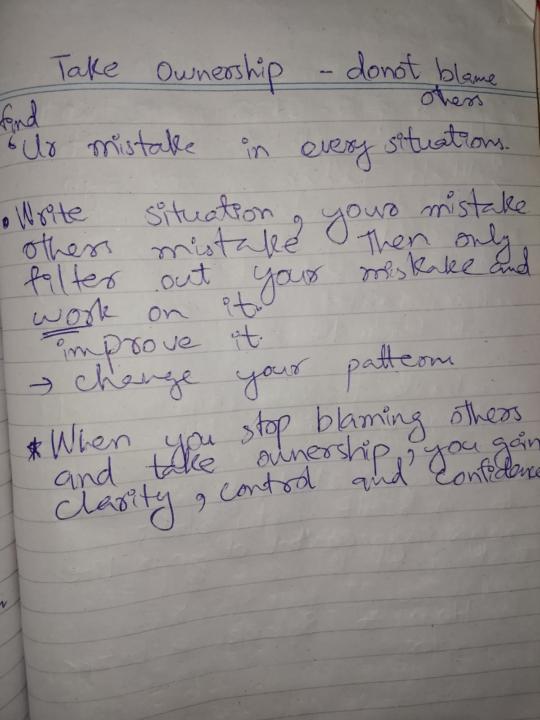 Take Ownership - donot blame
others
find
Ur mistake in every situations.
• Write situation, your mistake
others mistake Then only
filter out your miskake and
work on it.
improve it.
→ change your pattern
* When you stop blaming others
and take ownership, you gain
clarity, control and confidence